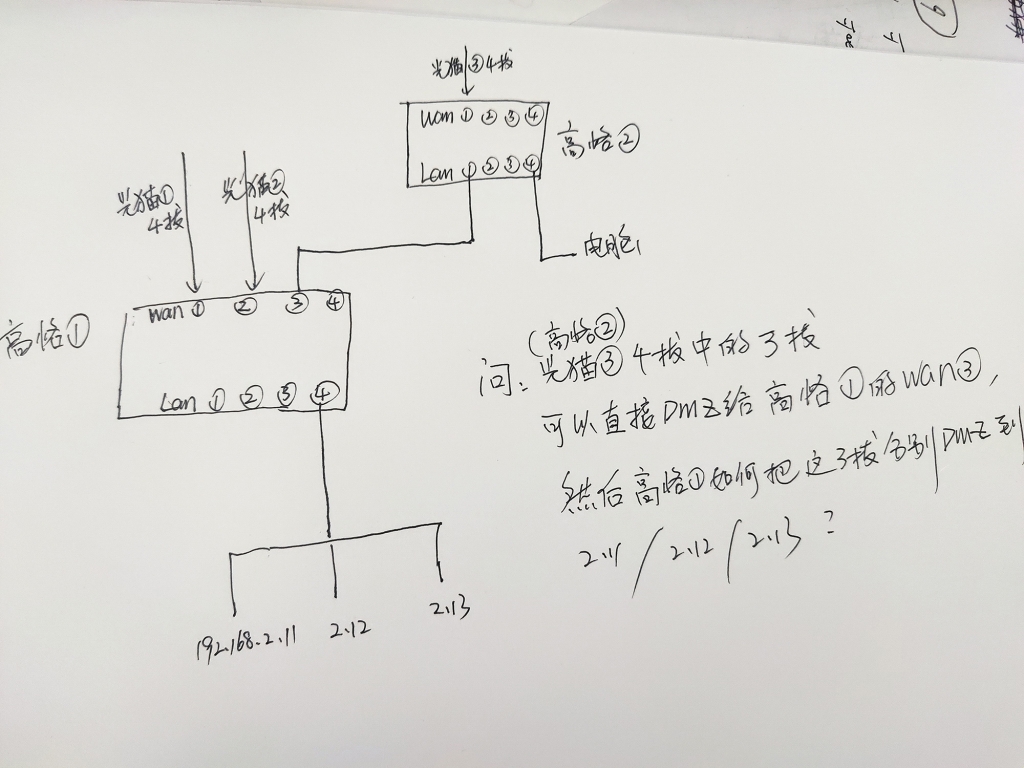 9
光猫③4拨
Wan ① ② ③ ④
高恪②
Lan ① ② ③ ④
光猫①
4拨
光猫②
4拨
电脑1
Wan ① ② ③ ④
高恪①
Lan ① ② ③ ④
(高恪②)
问：光猫③4拨中的3拨
可以直接DMZ给高恪①的Wan③，
然后高恪①如何把这3拨分别DMZ到
2.11/2.12/2.13？
192.168.2.11
2.12
2.13